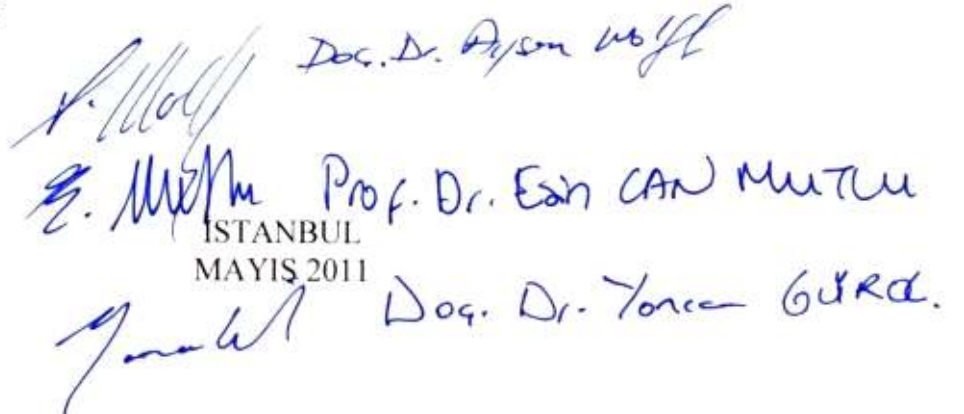 Doç. Dr. Ayşen Wolff
Prof. Dr. Esin CAN MUTLU
İSTANBUL
MAYIS 2011
Doç. Dr. Yonca GÜROL.